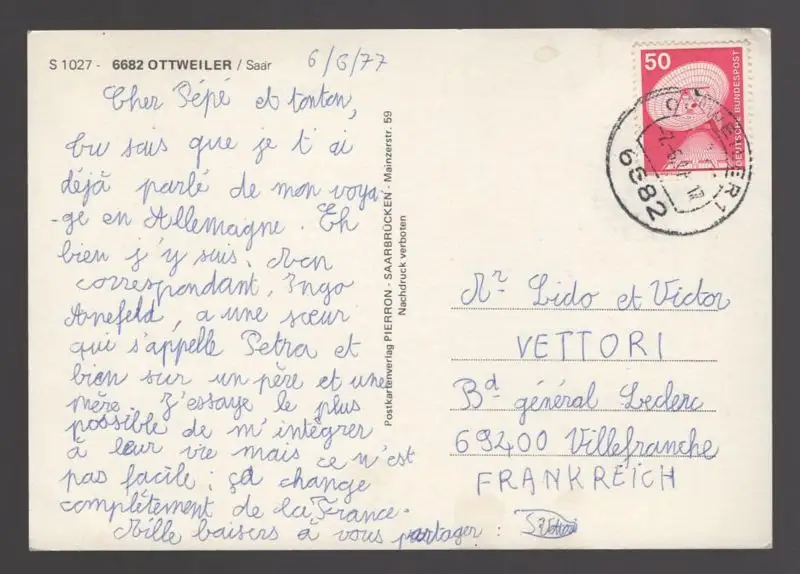 S 1027 - 6682 OTTWEILER / Saar
6/6/77
Cher Pépé et tonton,
Tu sais que je t'ai
déjà parlé de mon voya-
-ge en Allemagne. Eh
bien j'y suis. Mon
correspondant, Ingo
Anefeld, a une sœur
qui s'appelle Petra et
bien sur un père et une
mère. J'essaye le plus
possible de m'intégrer
à leur vie mais ce n'est
pas facile ; ça change
complètement de la France.
Mille baisers à vous partager :
Postkartenverlag PIERRON - SAARBRÜCKEN - Mainzerstr. 59
Nachdruck verboten
50
DEUTSCHE BUNDESPOST
6682
Mr Lido et Victor
VETTORI
Bd général Leclerc
69400 Villefranche
FRANKREICH